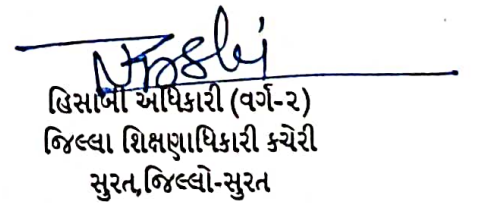 હિસાબી અધિકારી (વર્ગ-૨)
જિલ્લા શિક્ષણાધિકારી કચેરી
સુરત,જિલ્લો-સુરત